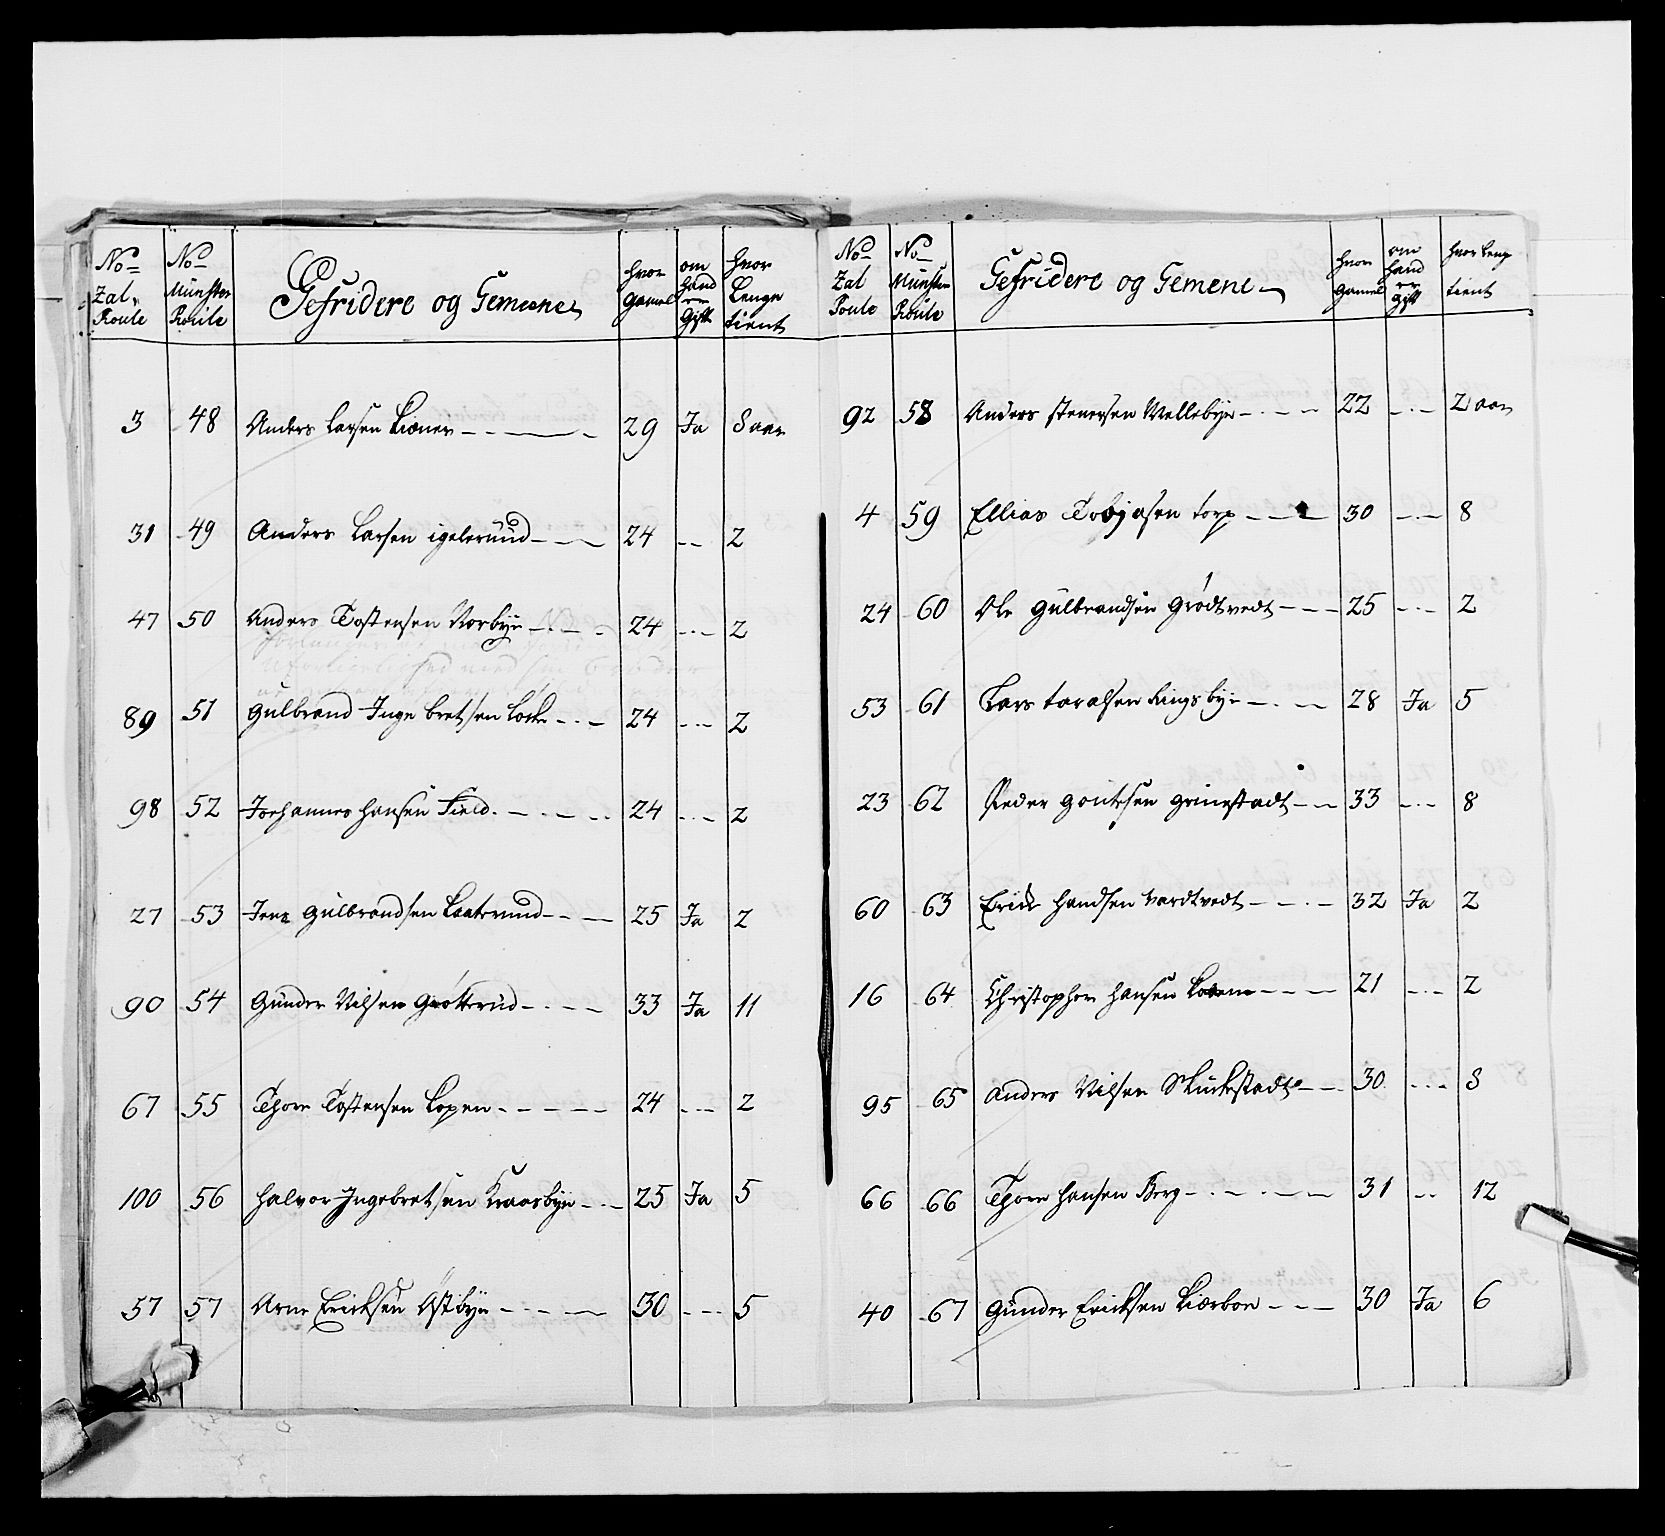 No Zal Roule | No Münster Roule | Gefridere og Gemene | hvor gamel | om hand er Gift | hvor Lenge tient
3 48 Anders Larsen Kiøner 29 Ja 8 aar
31 49 Anders Larsen igelerüud 24 2
47 50 Anders Tostensen Norbye 24 2
89 51 Gulbrand Ingebretsen Løche 24 2
98 52 Johannes Hansen Field 24 2
27 53 Jens Gulbrandsen 25 Ja 2
90 54 Günder Nilsen Grøtterüd 33 Ja 11
67 55 Thore Tostensen Lopen 24 2
100 56 Halvor Ingebretsen Knarbye 25 Ja 5
57 57 Arne Ericksen Østbye 30 5
No Zal Roule | No Münster Roule | Gefridere og Gemene | hvor gamel | om hand er gift | hvor Leng tient
92 58 Anders Stenersen Mellebye 22 2 aar
4 59 Ellias Tobjasen torp 30 8
24 60 Ole Gülbrandsen Grødtvedt 25 2
53 61 Lars taralsen Ringsbye 28 Ja 5
23 62 Peder Grinestadt 33 8
60 63 Erick Handsen Vardtvedt 32 Ja 2
16 64 Christopher Hansen 21 2
95 65 Anders Nilsen Skückestadt 30 8
66 66 Thore Hansen Berg 31 12
40 67 Günder Ericksen Kiærboe 30 Ja 6